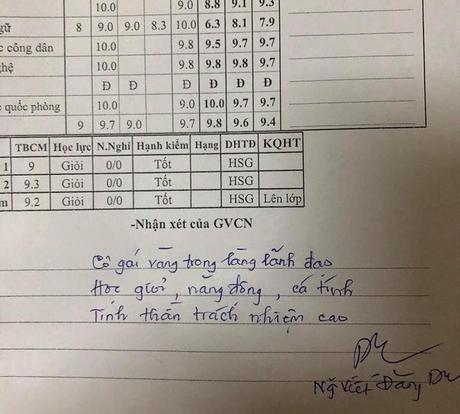 10.0 9.0 8.8 9.1 9.3
gữ 8 9.0 9.0 8.3 10.0 6.3 8.1 7.9
c công dân 10.0 9.8 9.5 9.7 9.7
ghệ 10.0 9.8 9.8 9.8 9.7
Đ Đ Đ Đ Đ
c quốc phòng 10.0 9.0 10.0 9.7 9.7
9 9.7 9.0 9.7 9.8 9.6 9.4
TBCM Học lực N.Nghỉ Hạnh kiểm Hạng DHTĐ KQHT
1 9 Giỏi 0/0 Tốt HSG
2 9.3 Giỏi 0/0 Tốt HSG
m 9.2 Giỏi 0/0 Tốt HSG Lên lớp
-Nhận xét của GVCN
Cô gái vàng trong làng lãnh đạo
Học giỏi, năng động, cá tính
Tinh thần trách nhiệm cao
Ng Viết Đăng Du